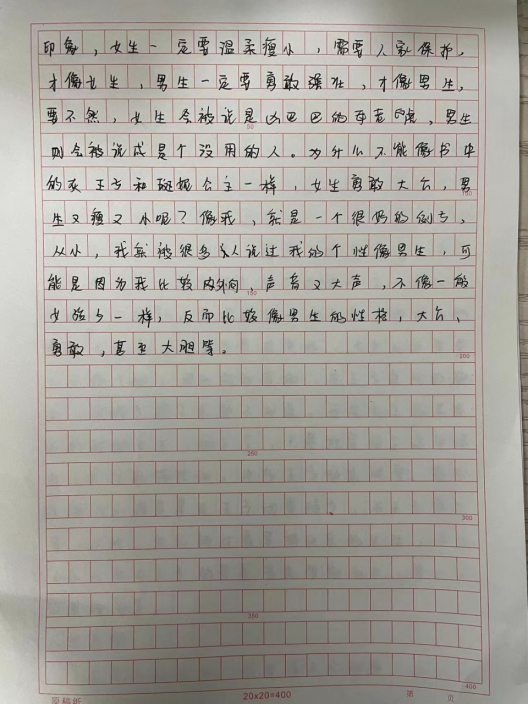 印象，女生一定要温柔瘦小，需要人家保护，
才像女生，男生一定要勇敢强壮，才像男生，
要不然，女生会被说是凶巴巴的母老虎，男生
50
则会被说成是个没用的人。为什么不能像书中
的灰王子和斑妮公主一样，女生勇敢大方，男
100
生又瘦又小呢？像我，就是一个很好的例子，
从小，我就被很多人说过我的个性像男生，可
能是因为我比较内向，声音又大声，不像一般
150
女孩子一样，反而比较像男生的性格，大方、
勇敢，甚至大胆等。
200
250
300
350
400
原稿纸 20x20=400 第 页